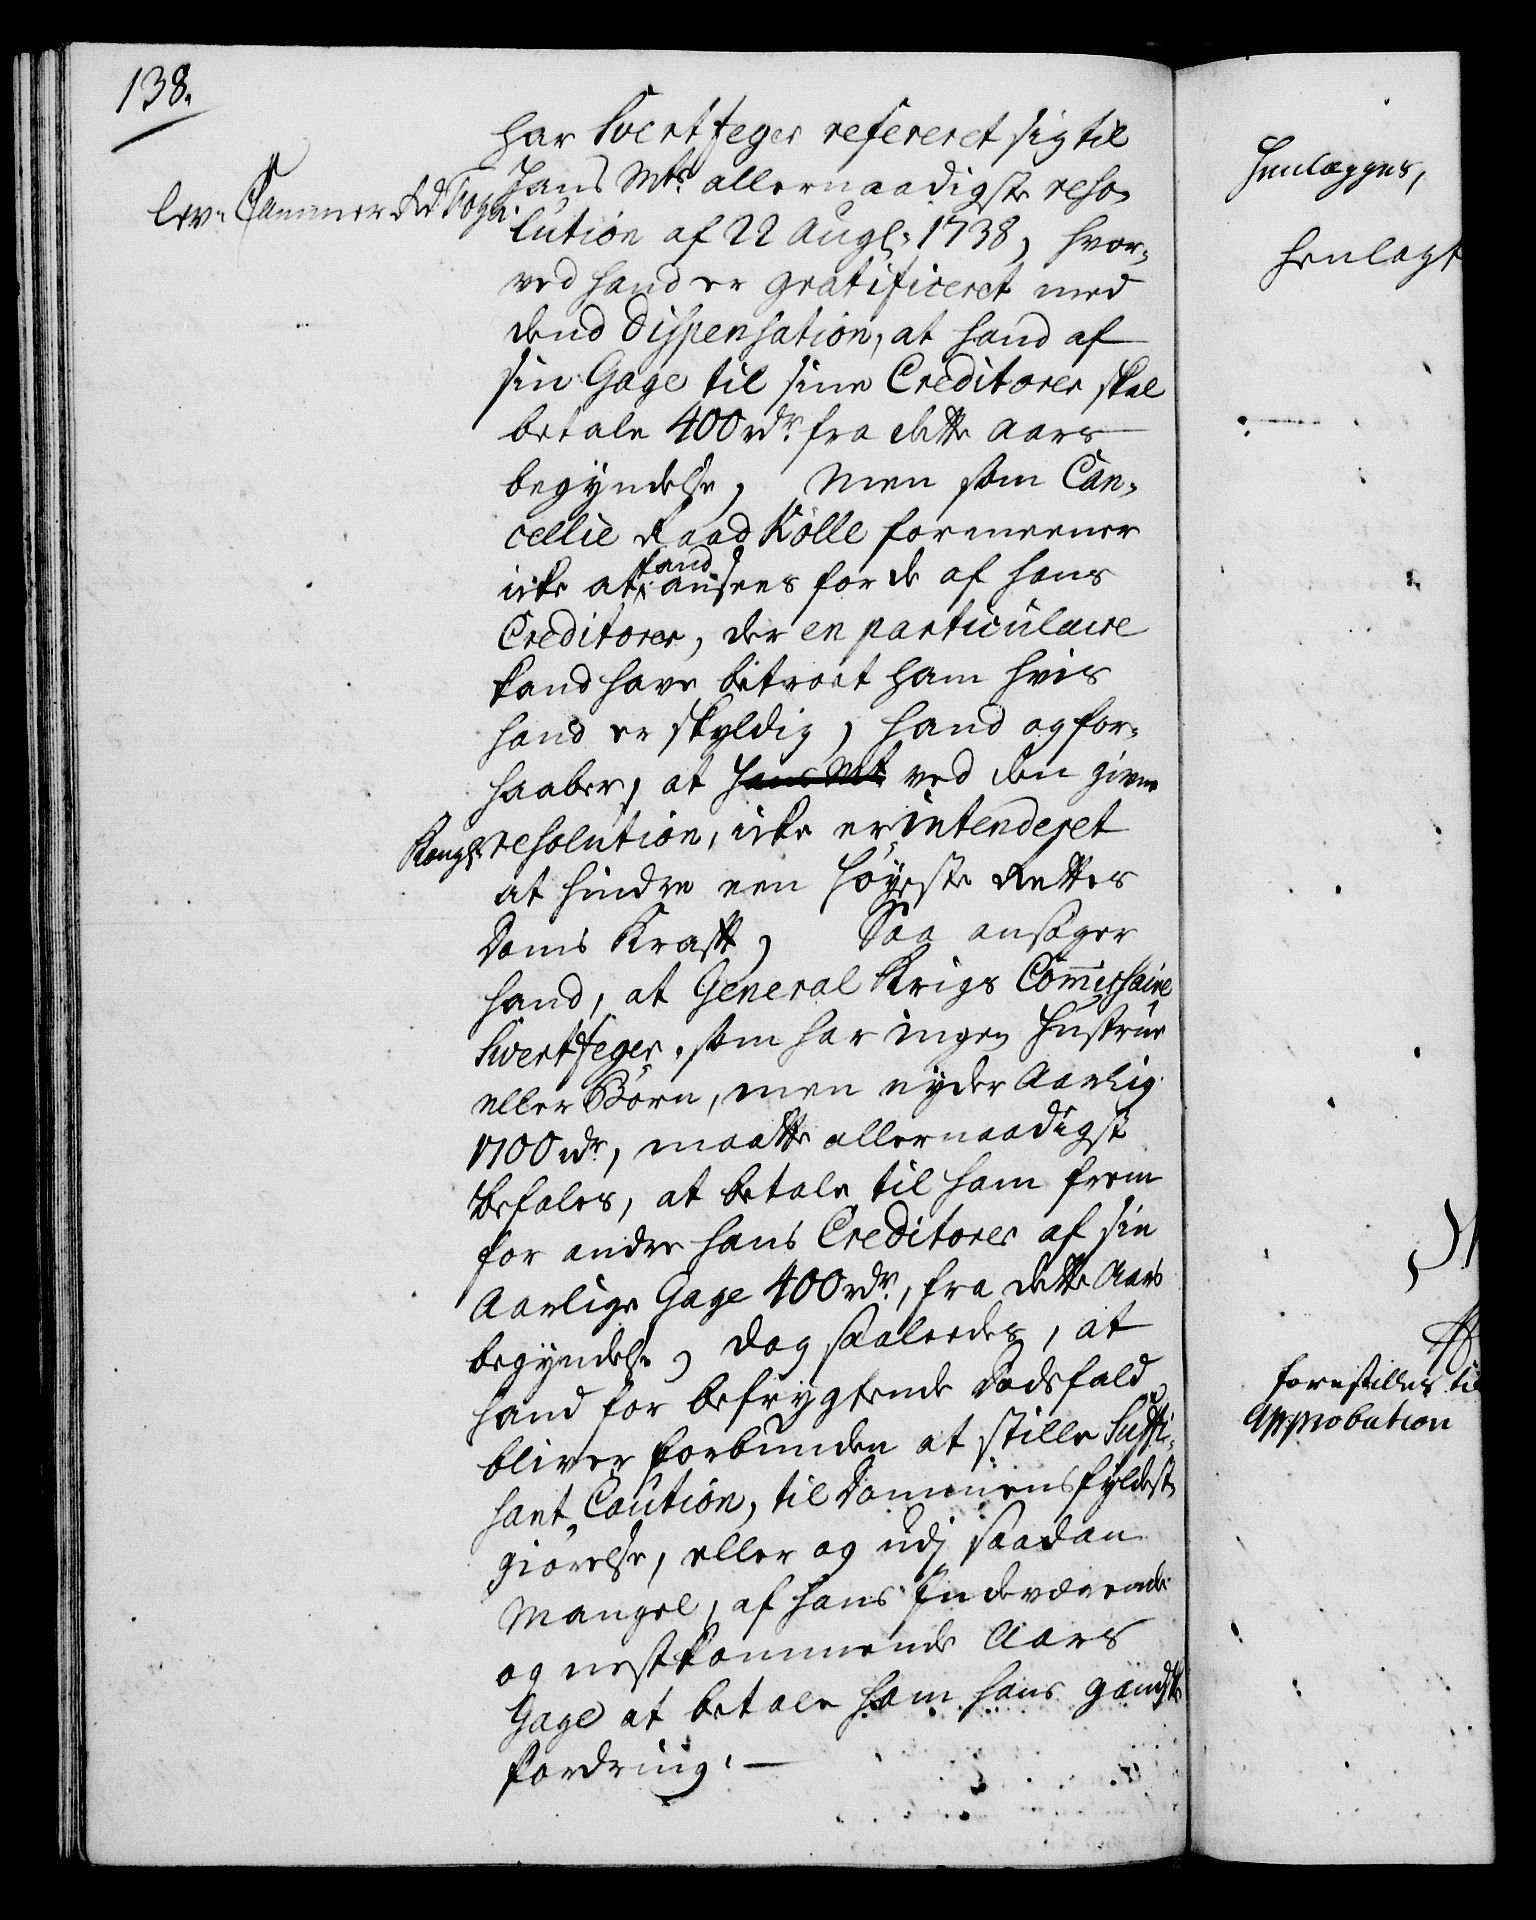 138.
har Svertfeger refereret sig til
Hans Mts allernaadigste reso¬
lution af 22 Augs: 1738, hvor¬
ved hand er gratificeret med
dend Dispensation, at hand af
sin Gage til sine Creditorer skal
betale 400 rdr fra dette Aars
begÿndelse, Men som Can¬
cellie Raad Kölle formeener
icke at kand ansees for de af hans
Creditorer, der en particulaire
kand have betroet ham hvis
hand er skyldig, hand og for¬
haaber, at Hans Mt ved den givne
Kongl: resolution, icke er intenderet
at hindre een Høyeste Rettes
Doms Krafft, Saa ansøger
hand, at General Krigs Commissaire
Svertfeger, som har ingen Hustrue
eller Børn, men nÿder Aarlig
1700 rdr, maatte allernaadigst
befales, at betale til ham frem
for andre hans Creditorer af sin
Aarlige Gage 400 rdr, fra dette Aars
begÿndelse, dog saaleedes, at
hand for befrygtende Dødsfald
bliver forbunden at stille Suffi¬
sant Caution, til Dommens fyldest
giørelse, eller og udj saadan
Mangel, af hans Indeværende
og nestkommende Aars
Gage at betale ham hans gandske
fordring. —
lev: Cammer Rd
Henlægges,
henlagt
forestilles til
Approbation